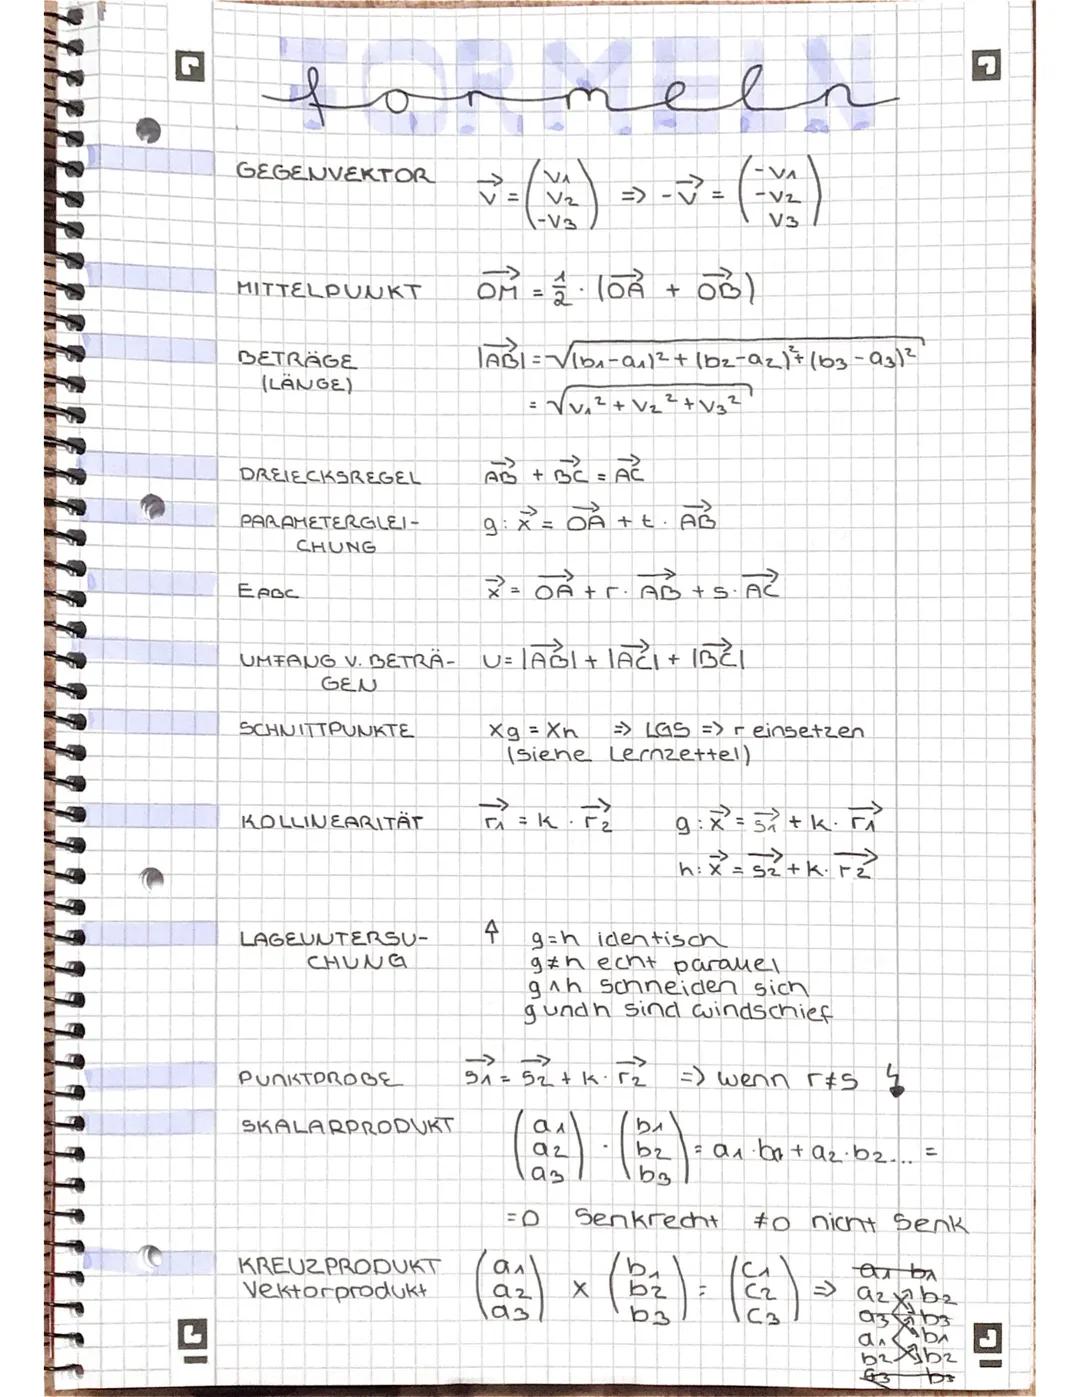 FORMELN
formeln
GEGENVEKTOR v⃗ = (v1 v2 -v3) => -v⃗ = (-v1 -v2 v3)
MITTELPUNKT OM⃗ = 1/2 · (OA⃗ + OB⃗)
BETRÄGE |AB⃗| = √(b1-a1)² + (b2-a2)² + (b3-a3)²
(LÄNGE) = √v1² + v2² + v3²
DREIECKSREGEL AB⃗ + BC⃗ = AC⃗
PARAMETERGLEI- g: x⃗ = OA⃗ + t · AB⃗
CHUNG
EABC x⃗ = OA⃗ + r · AB⃗ + s · AC⃗
UMFANG V. BETRÄ- U = |AB⃗| + |AC⃗| + |BC⃗|
GEN
SCHNITTPUNKTE xg = xh => LGS => r einsetzen
(siehe Lernzettel)
KOLLINEARITÄT r1⃗ = k · r2⃗ g: x⃗ = s1⃗ + k · r1⃗
h: x⃗ = s2⃗ + k · r2⃗
LAGEUNTERSU- ↑ g=h identisch
CHUNG g≠h echt parallel
g∧h schneiden sich
g und h sind windschief
PUNKTPROBE s1⃗ = s2⃗ + k · r2⃗ => wenn r≠s ↯
SKALARPRODUKT (a1 a2 a3) · (b1 b2 b3) = a1·b1 + a2·b2... =
=0 senkrecht ≠0 nicht senk
KREUZPRODUKT (a1 a2 a3) x (b1 b2 b3) = (c1 c2 c3) => a1 b1
Vektorprodukt a2 b2
a3 b3
a1 b1
b2 b2
a3 b3